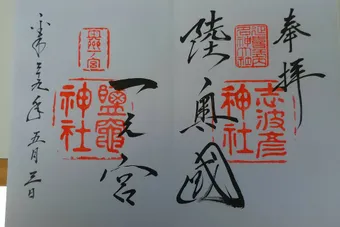 奉拝
志波彦
神社
陸奥國
一之宮
鹽竈
神社
五月三日